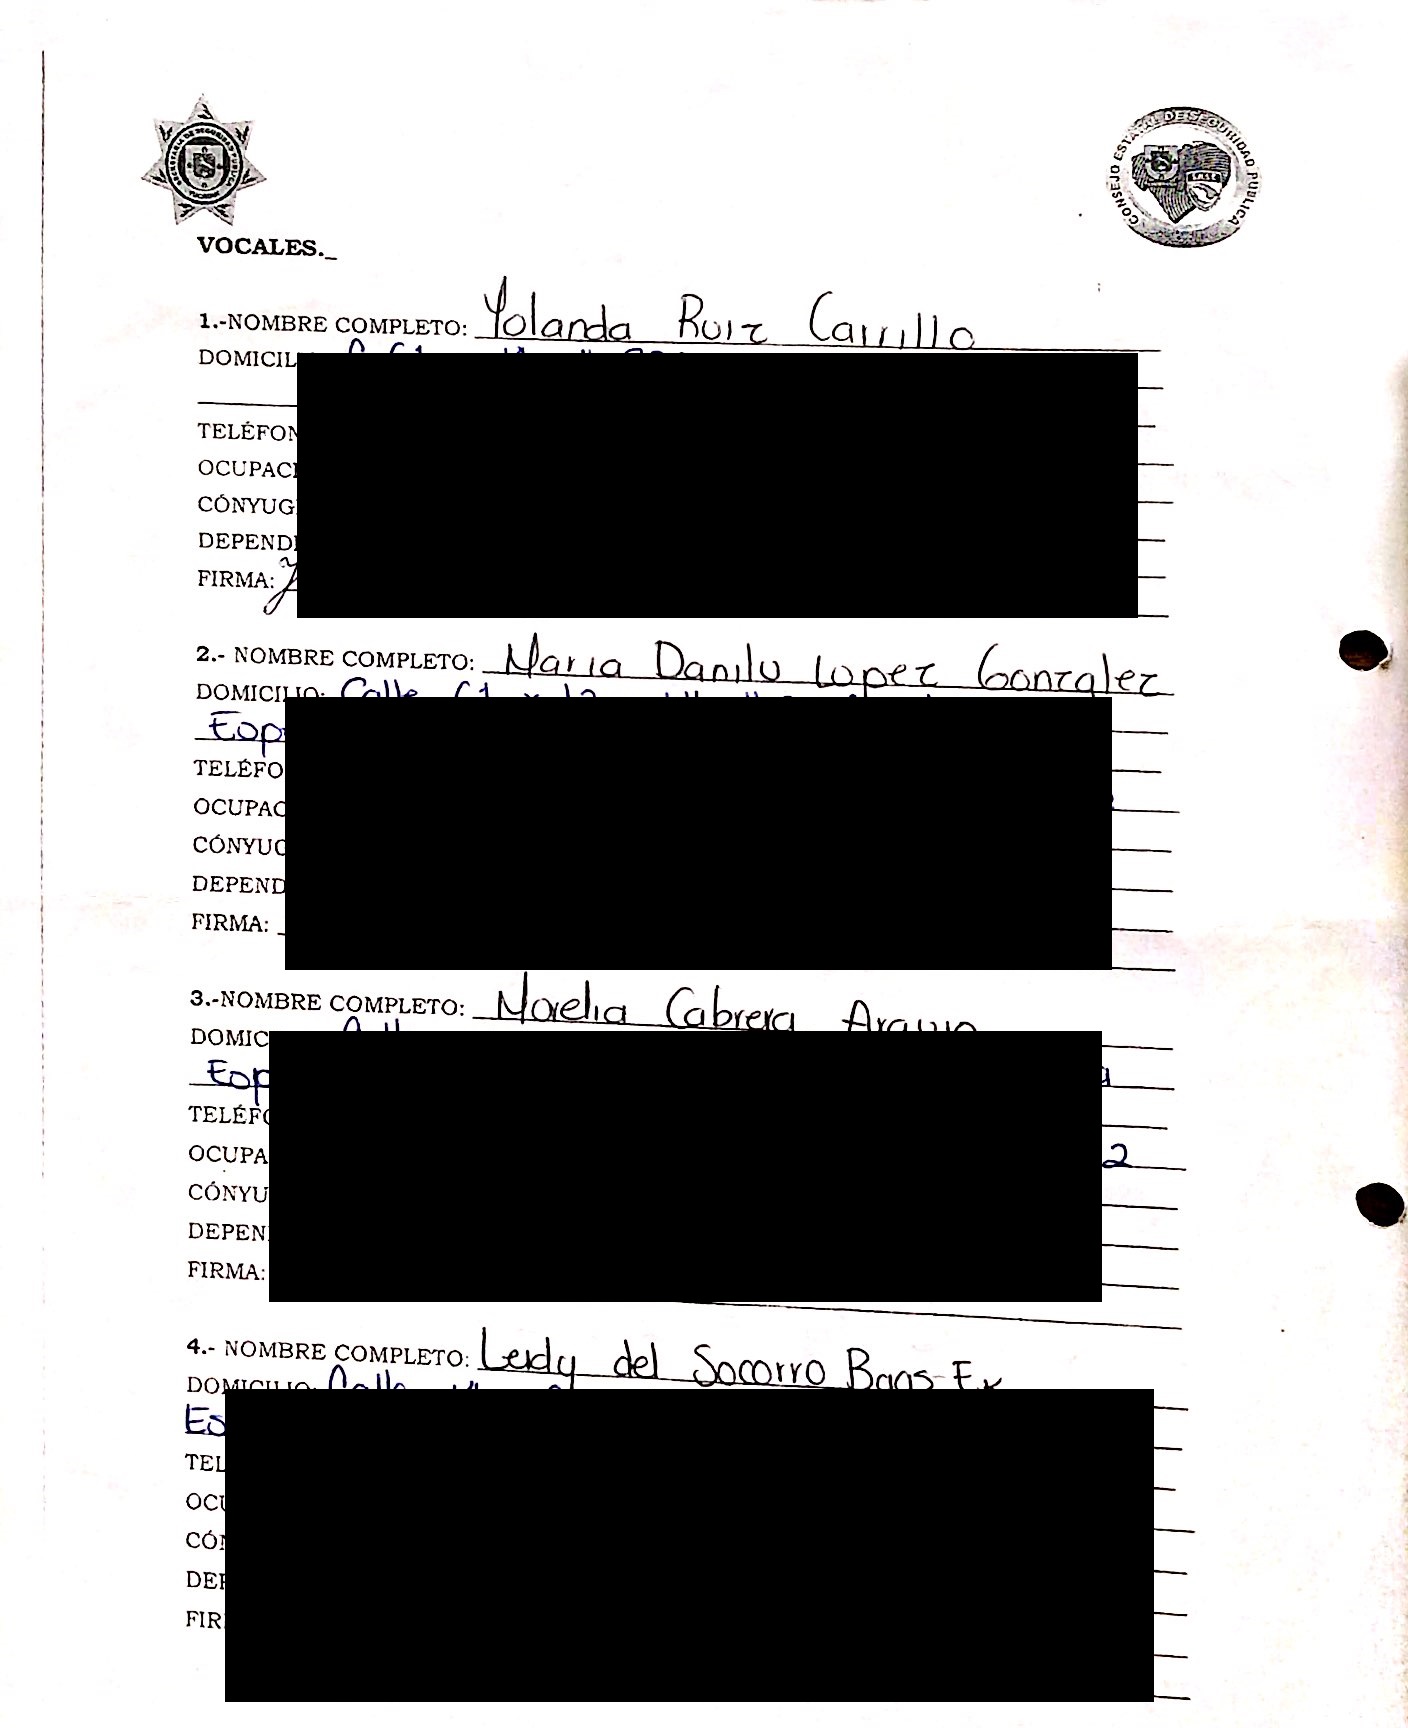 CONSEJO ESTATAL DE SEGURIDAD PUBLICA
VOCALES._
1.-NOMBRE COMPLETO: Yolanda Ruiz Carrillo
DOMICIL
TELÉFON
OCUPACI
CÓNYUG
DEPENDI
FIRMA:
2.- NOMBRE COMPLETO: Maria Danilu Lopez Gonzalez
DOMICILIO: Calle
Esp
TELÉFO
OCUPAC
CÓNYUG
DEPEND
FIRMA:
3.-NOMBRE COMPLETO: Norelia Cabrera Araujo
DOMIC
Esp
TELÉFO
OCUPA 2
CÓNYU
DEPEN
FIRMA:
4.- NOMBRE COMPLETO: Leidy del Socorro Baas Ek
DOMICILIO: Calle
Es
TEL
OCU
CÓN
DEP
FIR